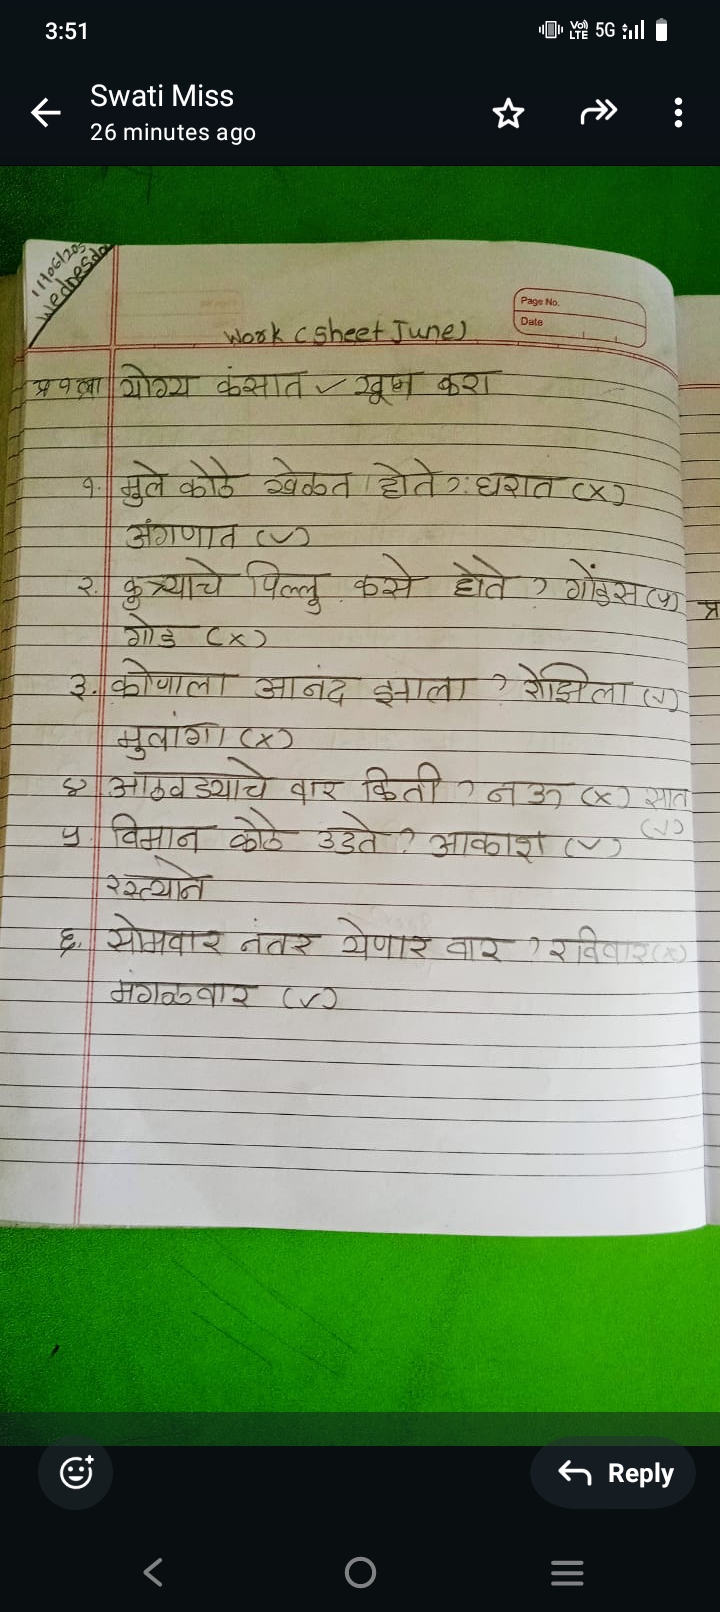 3:51
Vo) LTE 5G
Swati Miss
26 minutes ago
Wednesda
Page No.
Date
Work (Sheet June)
प्र १ ला योग्य कंसात ✓ खूण करा
१. मुले कोठे खेळत होते?: घरात (x)
अंगणात (✓)
२. कुत्र्याचे पिल्लू कसे होते? गोंडस (✓)
प्र
गोड (x)
३. कोणाला आनंद झाला? रोझीला (✓)
मुलांगा (x)
४ आठवड्याचे वार किती? नऊ (x) सात
(✓)
५ विमान कोठे उडते? आकाश (✓)
रस्त्याने
६. सोमवार नंतर येणार वार? रविवार (x)
मंगळवार (✓)
Reply